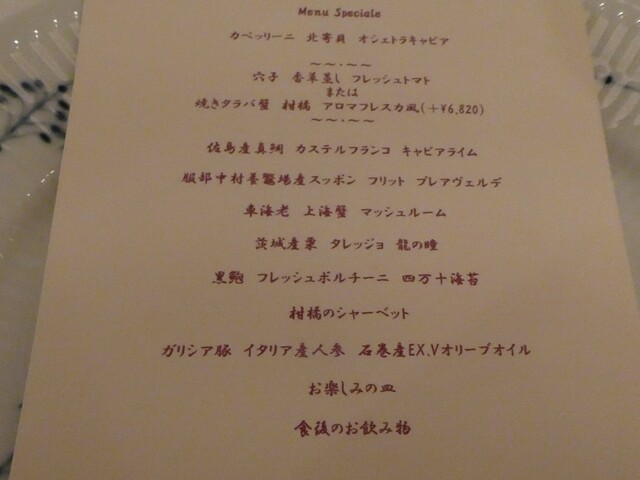 Menu Speciale
カペッリーニ 北寄貝 オシェトラキャビア
〜〜・〜〜
穴子 香草蒸し フレッシュトマト
または
焼きタラバ蟹 柑橘 アロマフレスカ風(+¥6,820)
〜〜・〜〜
佐島産真鯛 カステルフランコ キャビアライム
服部中村養鼈場産スッポン フリット プレアヴェルデ
車海老 上海蟹 マッシュルーム
茨城産栗 タレッジョ 龍の瞳
黒鮑 フレッシュポルチーニ 四万十海苔
柑橘のシャーベット
ガリシア豚 イタリア産人参 石巻産EX.Vオリーブオイル
お楽しみの皿
食後のお飲み物